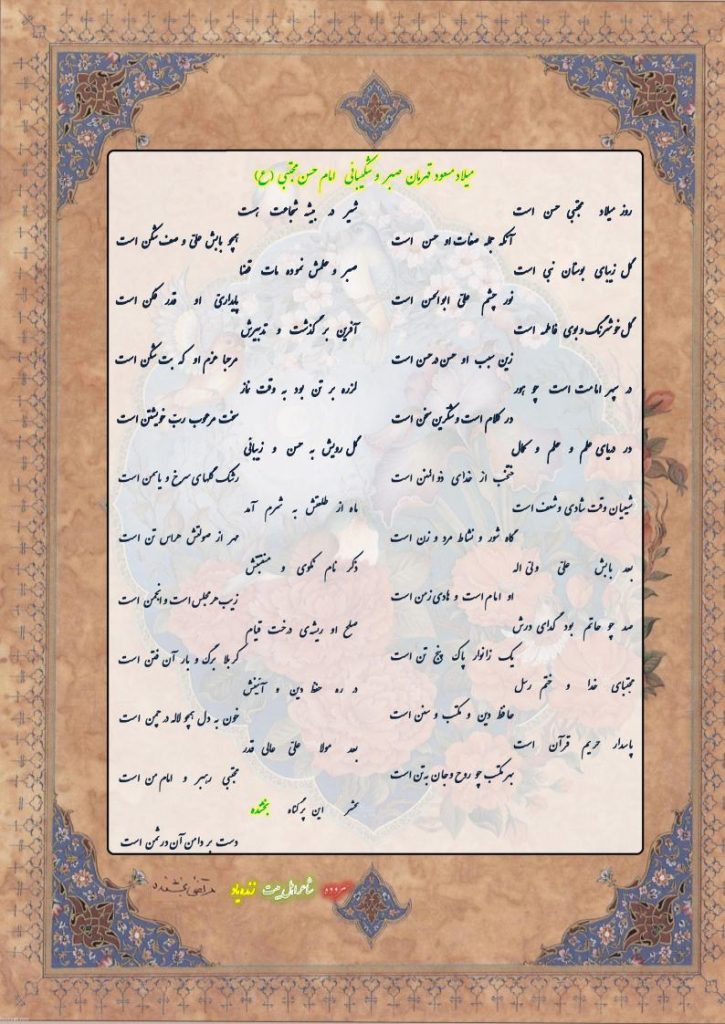 میلاد مسعود قهرمان صبر و شکیبائی امام حسن مجتبی (ع)
روز میلاد مجتبی حسن است
آنکه جمله صفات او حسن است
گل زیبای بوستان نبی است
نور چشم علی ابوالحسن است
گل خوشرنگ و بوی فاطمه است
زین سبب او حسن در حسن است
در سپهر امامت است چو هور
در کلام است و شکرین سخن است
در دریای علم و حلم و کمال
منتخب از خدای ذوالمنن است
شیعیان وقت شادی و شعف است
گاه شور و نشاط مرد و زن است
بعد بابش علی ولی اله
او امام است و هادی زمن است
صد چو حاتم بود گدای درش
یک زانوار پاک پنج تن است
مجتبای خدا و ختم رسل
حافظ دین و مکتب و سنن است
پاسدار حریم قرآن است
بهر مکتب چو روح و جان به تن است
شیر در بیشه شجاعت است
همچو بابش علی و صف شکن است
صبر و حلمش نموده مات قضا
پایداریّ او قدر فکن است
آفرین بر گذشت و تدبیرش
مرحبا عزم او که بت شکن است
لرزه بر تن بود به وقت نماز
سخت مرعوب ربّ خویشتن است
گل رویش به حسن و زیبائی
رشک گلهای سرخ و یاسمن است
ماه از طلعتش به شرم آمد
مهر از صولتش هراس تن است
ذکر نام نکوی و منقبتش
زیب هر مجلس است و انجمن است
صلح او ریشه‌ی درخت قیام
کربلا برگ و بار آن فتن است
در ره حفظ دین و آئینش
خون به دل همچو لاله در چمن است
بعد مولا علی عالی قدر
مجتبی رهبر و امام من است
محشر این پرگناه بخشنده
دست بر دامن آن در ثمن است
سروده شاعر اهل بیت زنده یاد